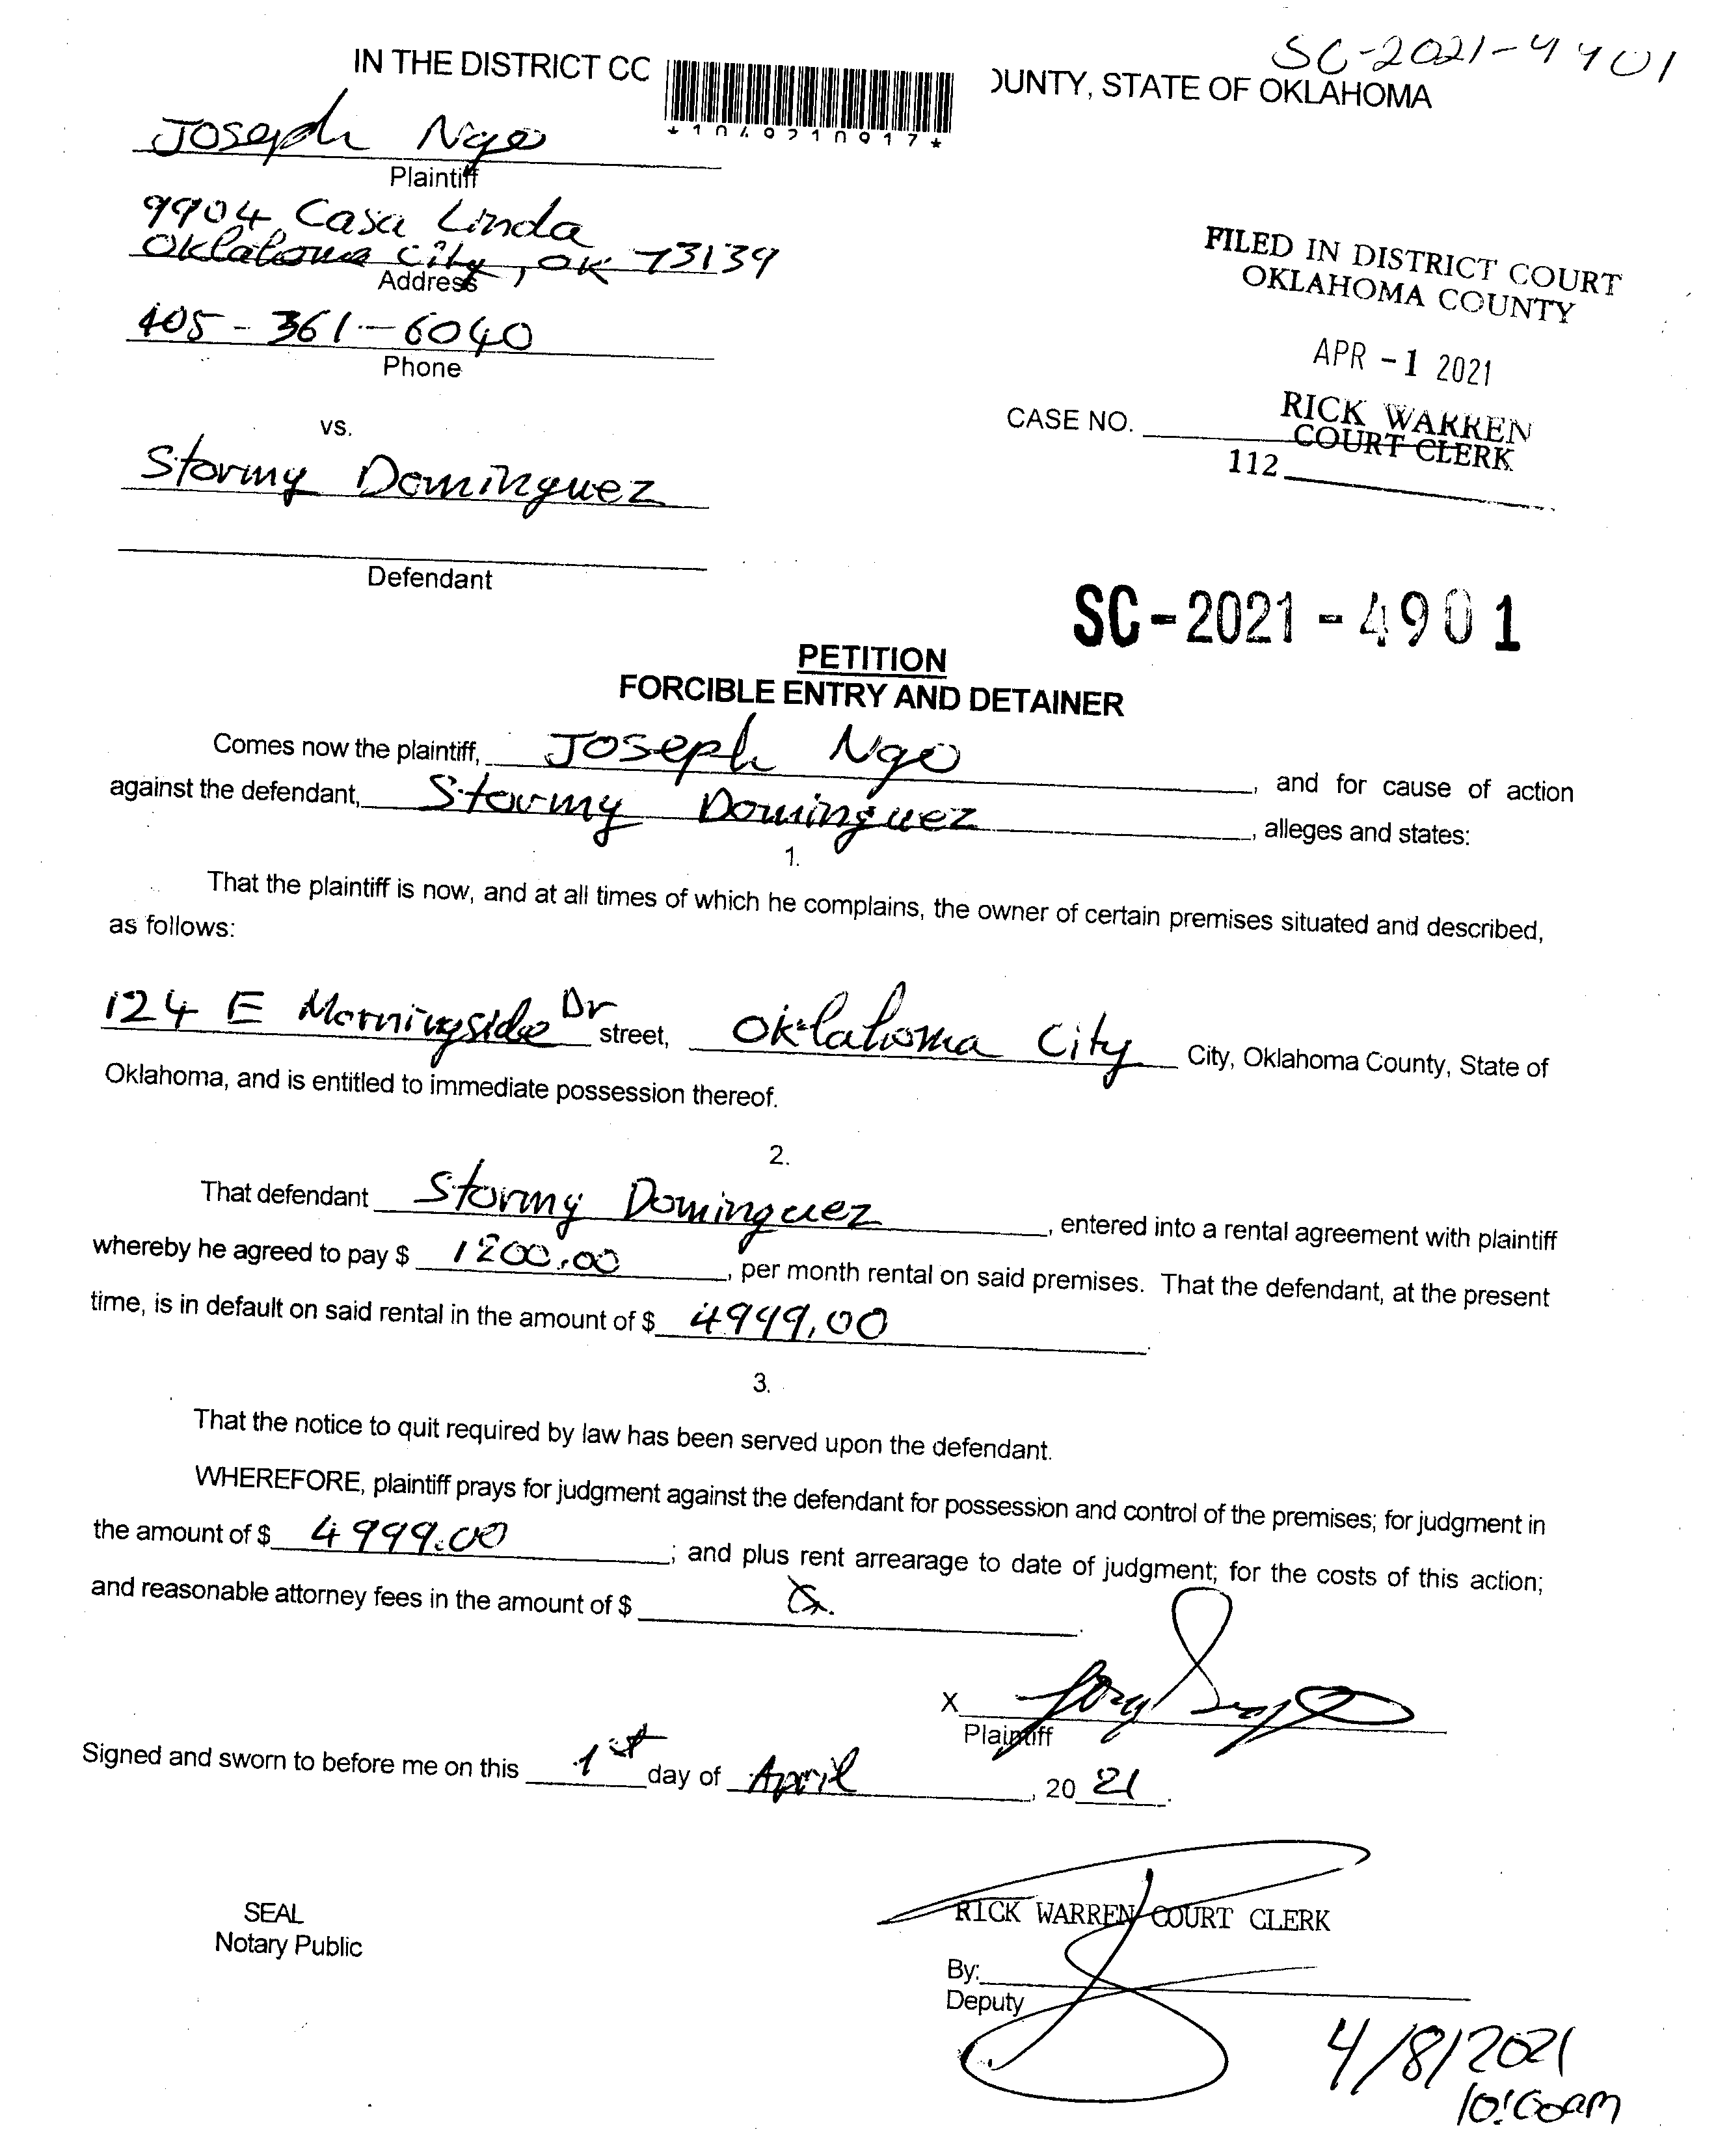 SC-2021-4901
IN THE DISTRICT CO OUNTY, STATE OF OKLAHOMA
*1049210917*
Joseph Ngo
Plaintiff
9904 Casa Linda
Oklahoma City, OK 73139
Address
405-361-6040
Phone
FILED IN DISTRICT COURT
OKLAHOMA COUNTY
APR -1 2021
RICK WARREN
COURT CLERK
CASE NO.
112
vs.
Stormy Dominguez
Defendant
SC-2021-4901
PETITION
FORCIBLE ENTRY AND DETAINER
Comes now the plaintiff, Joseph Ngo, and for cause of action
against the defendant, Stormy Dominguez, alleges and states:
1.
That the plaintiff is now, and at all times of which he complains, the owner of certain premises situated and described,
as follows:
124 E Morningside Dr street, Oklahoma City City, Oklahoma County, State of
Oklahoma, and is entitled to immediate possession thereof.
2.
That defendant Stormy Dominguez, entered into a rental agreement with plaintiff
whereby he agreed to pay $ 1200.00, per month rental on said premises. That the defendant, at the present
time, is in default on said rental in the amount of $ 4999.00.
3.
That the notice to quit required by law has been served upon the defendant.
WHEREFORE, plaintiff prays for judgment against the defendant for possession and control of the premises; for judgment in
the amount of $ 4999.00; and plus rent arrearage to date of judgment; for the costs of this action;
and reasonable attorney fees in the amount of $.
X
Plaintiff
Signed and sworn to before me on this 1st day of April, 20 21.
SEAL
Notary Public
RICK WARREN COURT CLERK
By:
Deputy
4/8/2021
10:00am